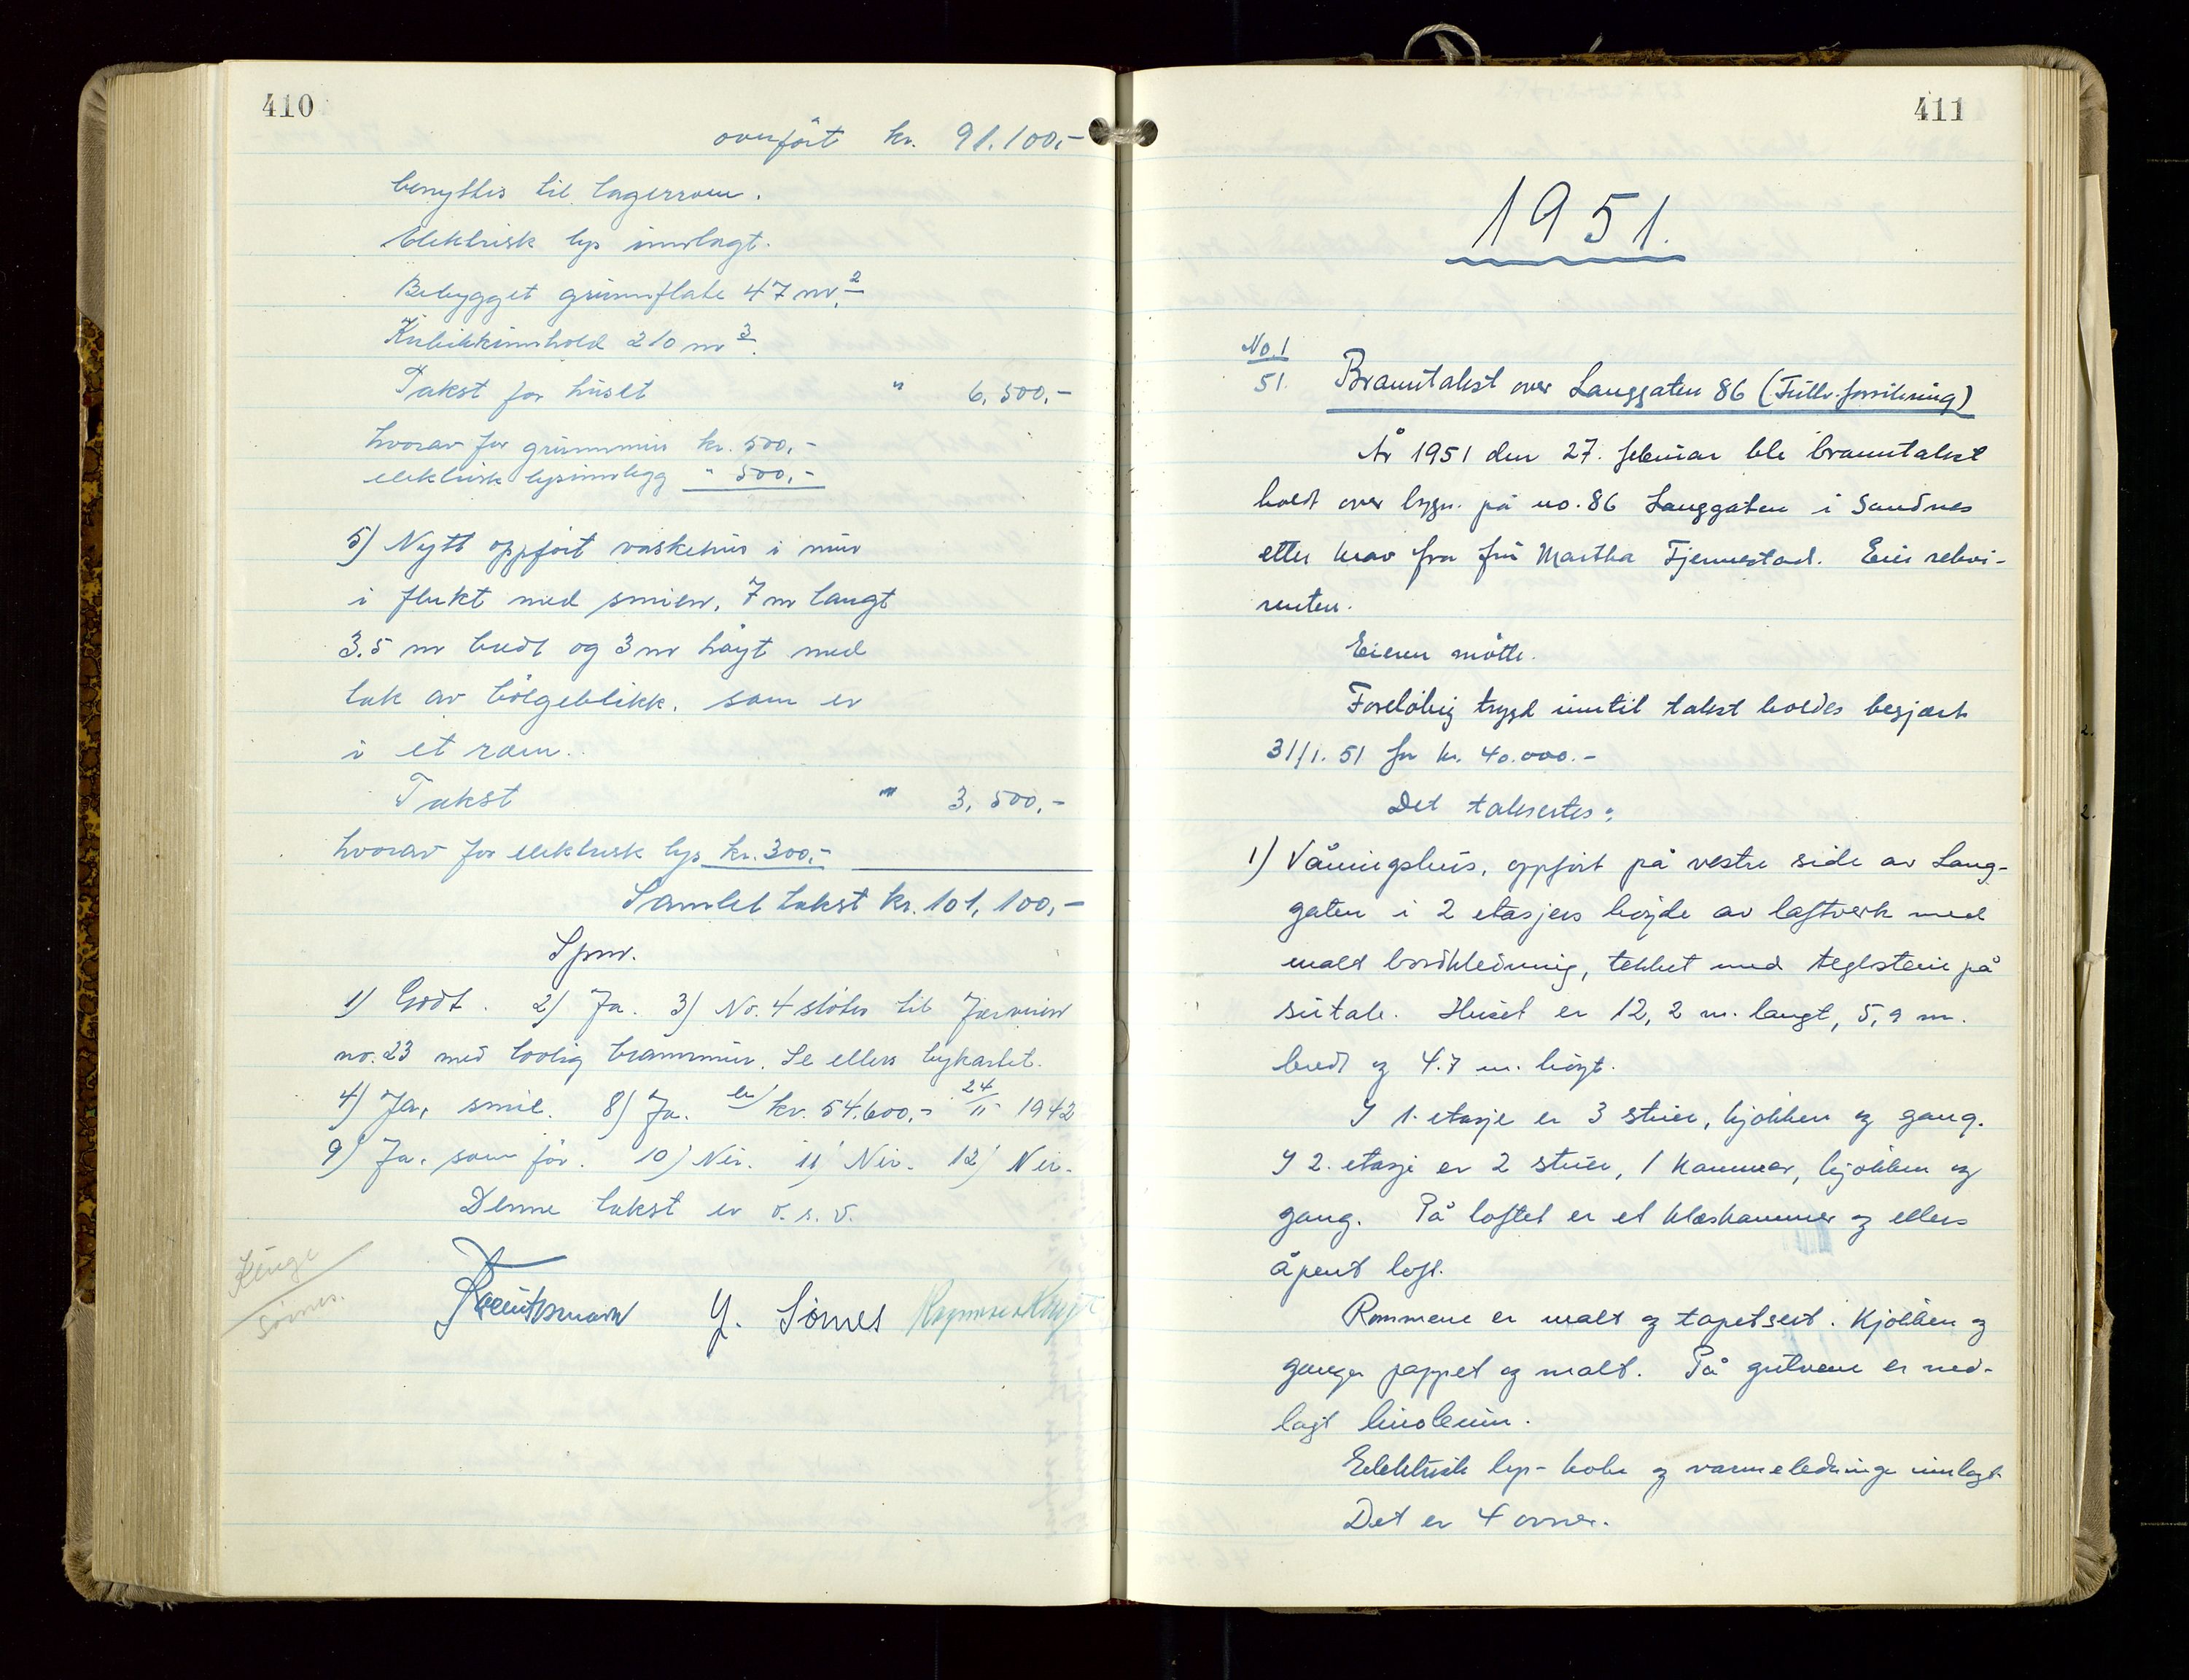 410
overført kr. 91.100,-
benyttes til lagerrom.
Elektrisk lys innlagt.
Bebygget grunnflate 47 m.2
Kubikkinnhold 210 m3.
Takst for huset " 6.500,-
hvorav for grunnmur kr. 500,-
elektrisk lysinnlegg " 500,-
5) Nytt oppført vaskehus i mur
i flukt med smien, 7 m langt
3.5 m bredt og 3 m høyt med
tak av bölgeblikk. som er
i et rom.
Takst " 3.500,-
hvorav for elektrisk lys kr. 300,-
Samlet takst kr. 101.100,-
Spm.
1) Godt. 2) Ja. 3) No. 4 støter til Jærveien
no. 23 med lovlig brannmur. Se ellers bykartet.
4) Ja, smie. 8) Ja. kr. 54.600,- 24/11 1942
9) Ja, som før. 10) Nei. 11) Nei. 12) Nei.
Denne takst er o.s.v.
Y. Sömes
411
1951.
No. 1
51.
Branntakst over Langgaten 86 (Fullv. forsikring)
År 1951 den 27. februar ble branntakst
holdt over bygn. på no. 86 Langgaten i Sandnes
etter krav fra frú Martha Tjennestad. Eier rekvi-
renten.
Eieren møtte.
Foreløbig trygd inntil takst holdes begjært
31/1. 51 for kr. 40.000.-
Det takseres:
1) Våningshus, oppført på vestre side av Lang-
gaten i 2 etasjers høyde av laftverk med
malt bordkledning, tekket med teglstein på
sutak. Huset er 12,2 m. langt, 5,9 m.
bredt og 4.7 m. høyt.
I 1. etasje er 3 stuer, kjøkken og gang.
I 2. etasje er 2 stuer, 1 kammer, kjøkken og
gang. På loftet er et klæskammer og ellers
åpent loft.
Rommene er malt og tapetsert. Kjøkken og
ganger pappet og malt. På gulvene er ned-
lagt linoleum.
Elektrisk lys- koke og varmeledninge innlagt.
Det er 4 ovner.